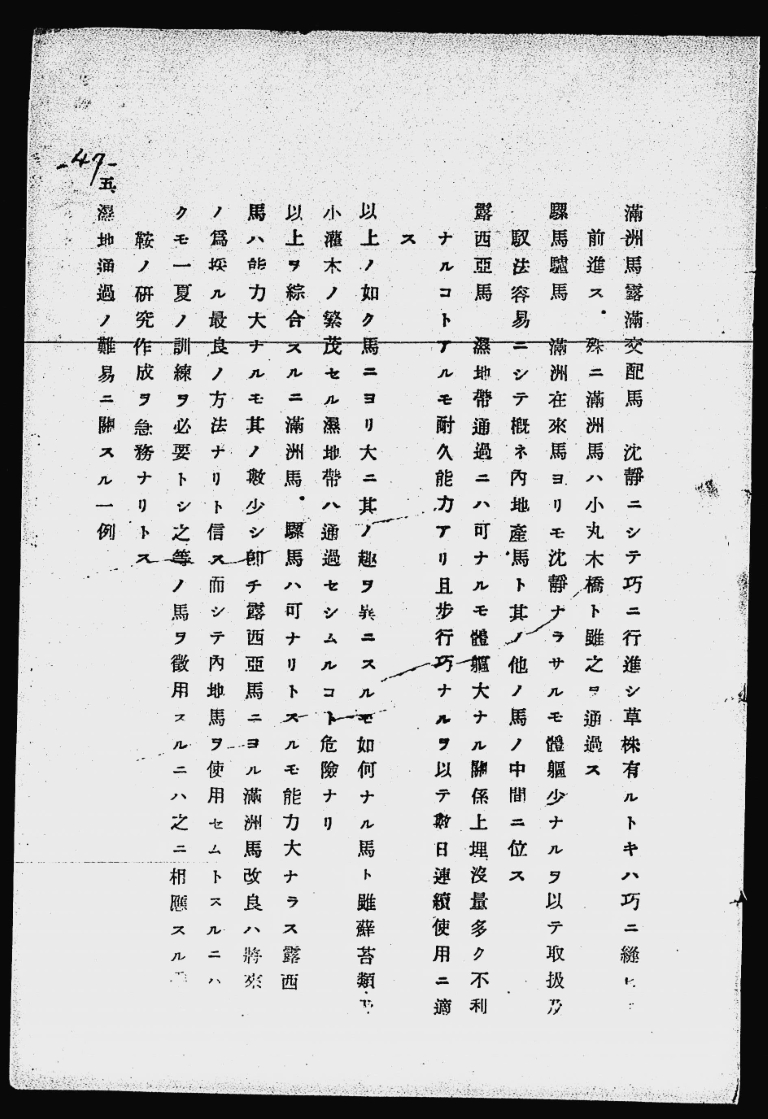 滿洲馬露滿交配馬　沈靜ニシテ巧ニ行進シ草株有ルトキハ巧ニ縫ヒ
前進ス・殊ニ滿洲馬ハ小丸木橋ト雖之ヲ通過ス
騾馬驢馬　滿洲在來馬ヨリモ沈靜ナラサルモ體軀少ナルヲ以テ取扱及
馭法容易ニシテ概ネ內地產馬ト其ノ他ノ馬ノ中間ニ位ス
露西亞馬　濕地帶通過ニハ可ナルモ體軀大ナル關係上埋沒量多ク不利
ナルコトアルモ耐久能力アリ且步行巧ナルヲ以テ數日連續使用ニ適
ス
以上ノ如ク馬ニヨリ大ニ其ノ趣ヲ異ニスルモ如何ナル馬ト雖蘚苔類及
小灌木ノ繁茂セル濕地帶ハ通過セシムルコト危險ナリ
以上ヲ綜合スルニ滿洲馬・騾馬ハ可ナリトスルモ能力大ナラス露西
馬ハ能力大ナルモ其ノ數少シ卽チ露西亞馬ニヨル滿洲馬改良ハ將來
ノ爲採ル最良ノ方法ナリト信ス而シテ內地馬ヲ使用セムトスルニハ
クモ一夏ノ訓練ヲ必要トシ之等ノ馬ヲ徵用スルニハ之ニ相應スル
鞍ノ硏究作成ヲ急務ナリトス
五、濕地通過ノ難易ニ關スル一例
-47-